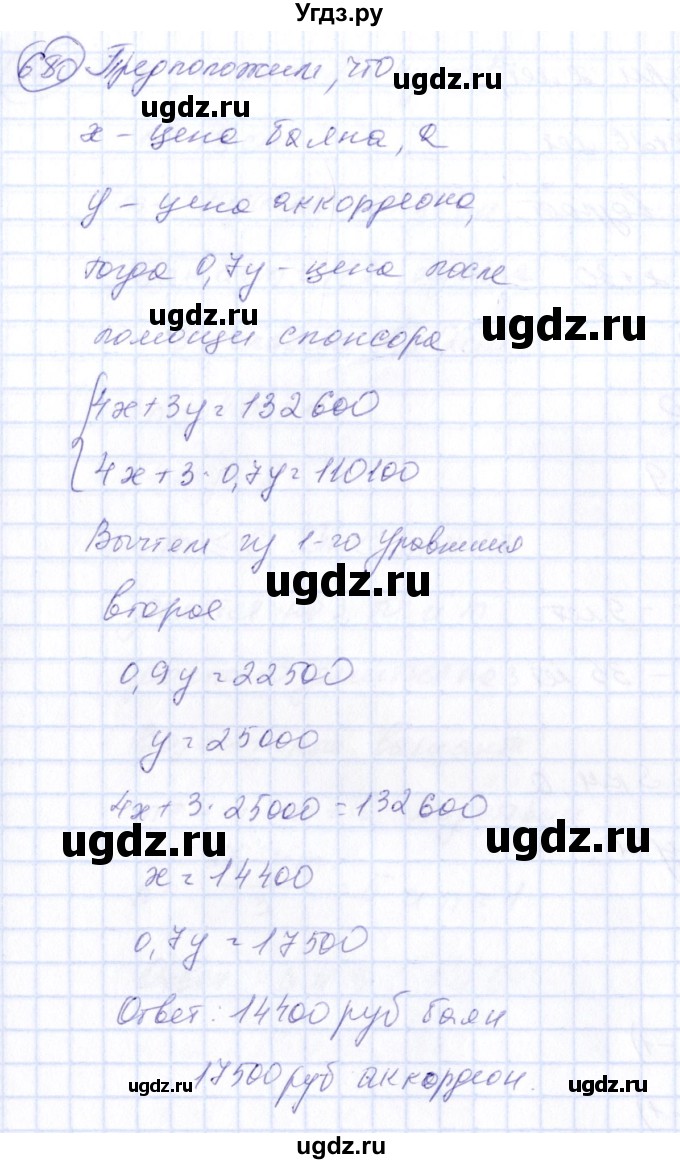 Угдз.ру
680 Предположим, что
x – цена баяна, а
y – цена аккордеона,
тогда 0,7y – цена после
помощи спонсора
ugdz.ru
ugdz.ru
4x + 3y = 132600
4x + 3 · 0,7y = 110100
Вычтем из 1-го уравнения
ugdz.ru
второе
0,9y = 22500
y = 25000
4x + 3 · 25000 = 132600
ugdz.ru
ugdz.ru
x = 14400
0,7y = 17500
Ответ: 14400 руб баян
17500 руб аккордеон.
ugdz.ru
ugdz.ru
ugdz.ru